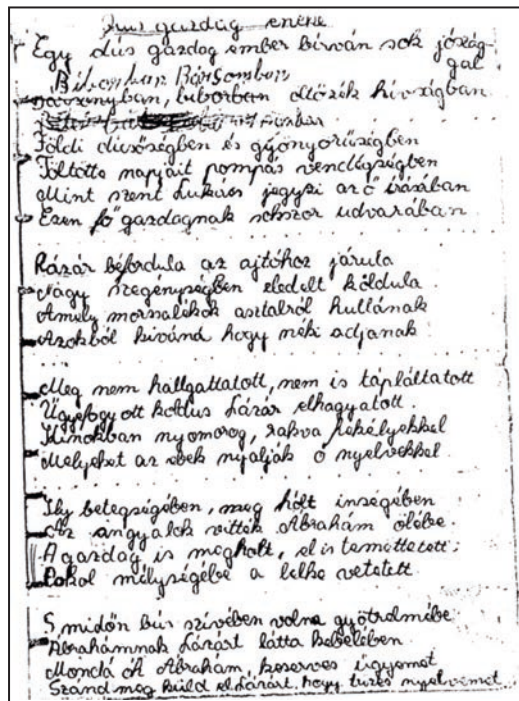 Dus gazdag éneke
Egy dús gazdag ember bírván sok jószág-
gal
Bíborban Bársomban
bársonyban, biborban öltözék hívságban
Földi dicsőségben és gyönyörűségben
Töltötte napjait pompás vendégségben
Mint szent Lukács jegyzi az ő írásában
Ezen fő gazdagnak sokszor udvarában
Lázár béfordula az ajtóhoz járula
Nagy szegénységben eledelt köldula
Amely morsalékok asztalról hullának
Azokból kívánd hogy néki adjanak
Meg nem hallgattatott, nem is tápláltatott
Ügyefogyott koldus Lázár elhagyatott.
Kinokban nyomorog, rakva fekélyekkel
Melyeket az ebek nyalják ő nyelvekkel
Ily betegségében, meg hólt inségében
Az angyalok vitték Ábrahám ölébe.
A gazdag is megholt, el is temettetett;
Pokol mélységébe a lelke vetetett
S midőn bús szívében volna gyötrelmébe
Ábrahámnak Lázárt látta kebelében
Mondá óh Ábrahám, keserves ügyemet
Szánd meg küld el Lázárt, hogy tüzes nyelvemet